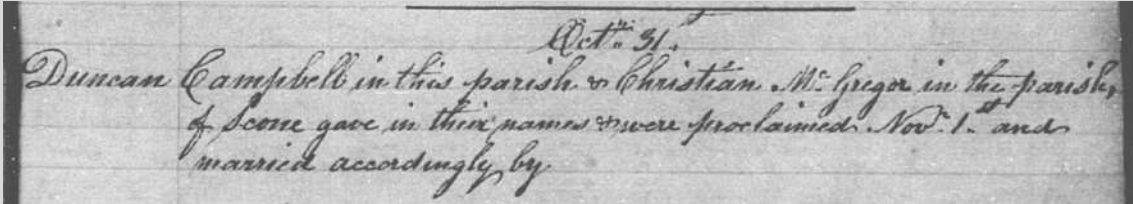 Octr. 31st.
Duncan Campbell in this parish & Christian Mc Gregor in the parish
of Scone gave in their names & were proclaimed. Novr. 1.st and
married accordingly by